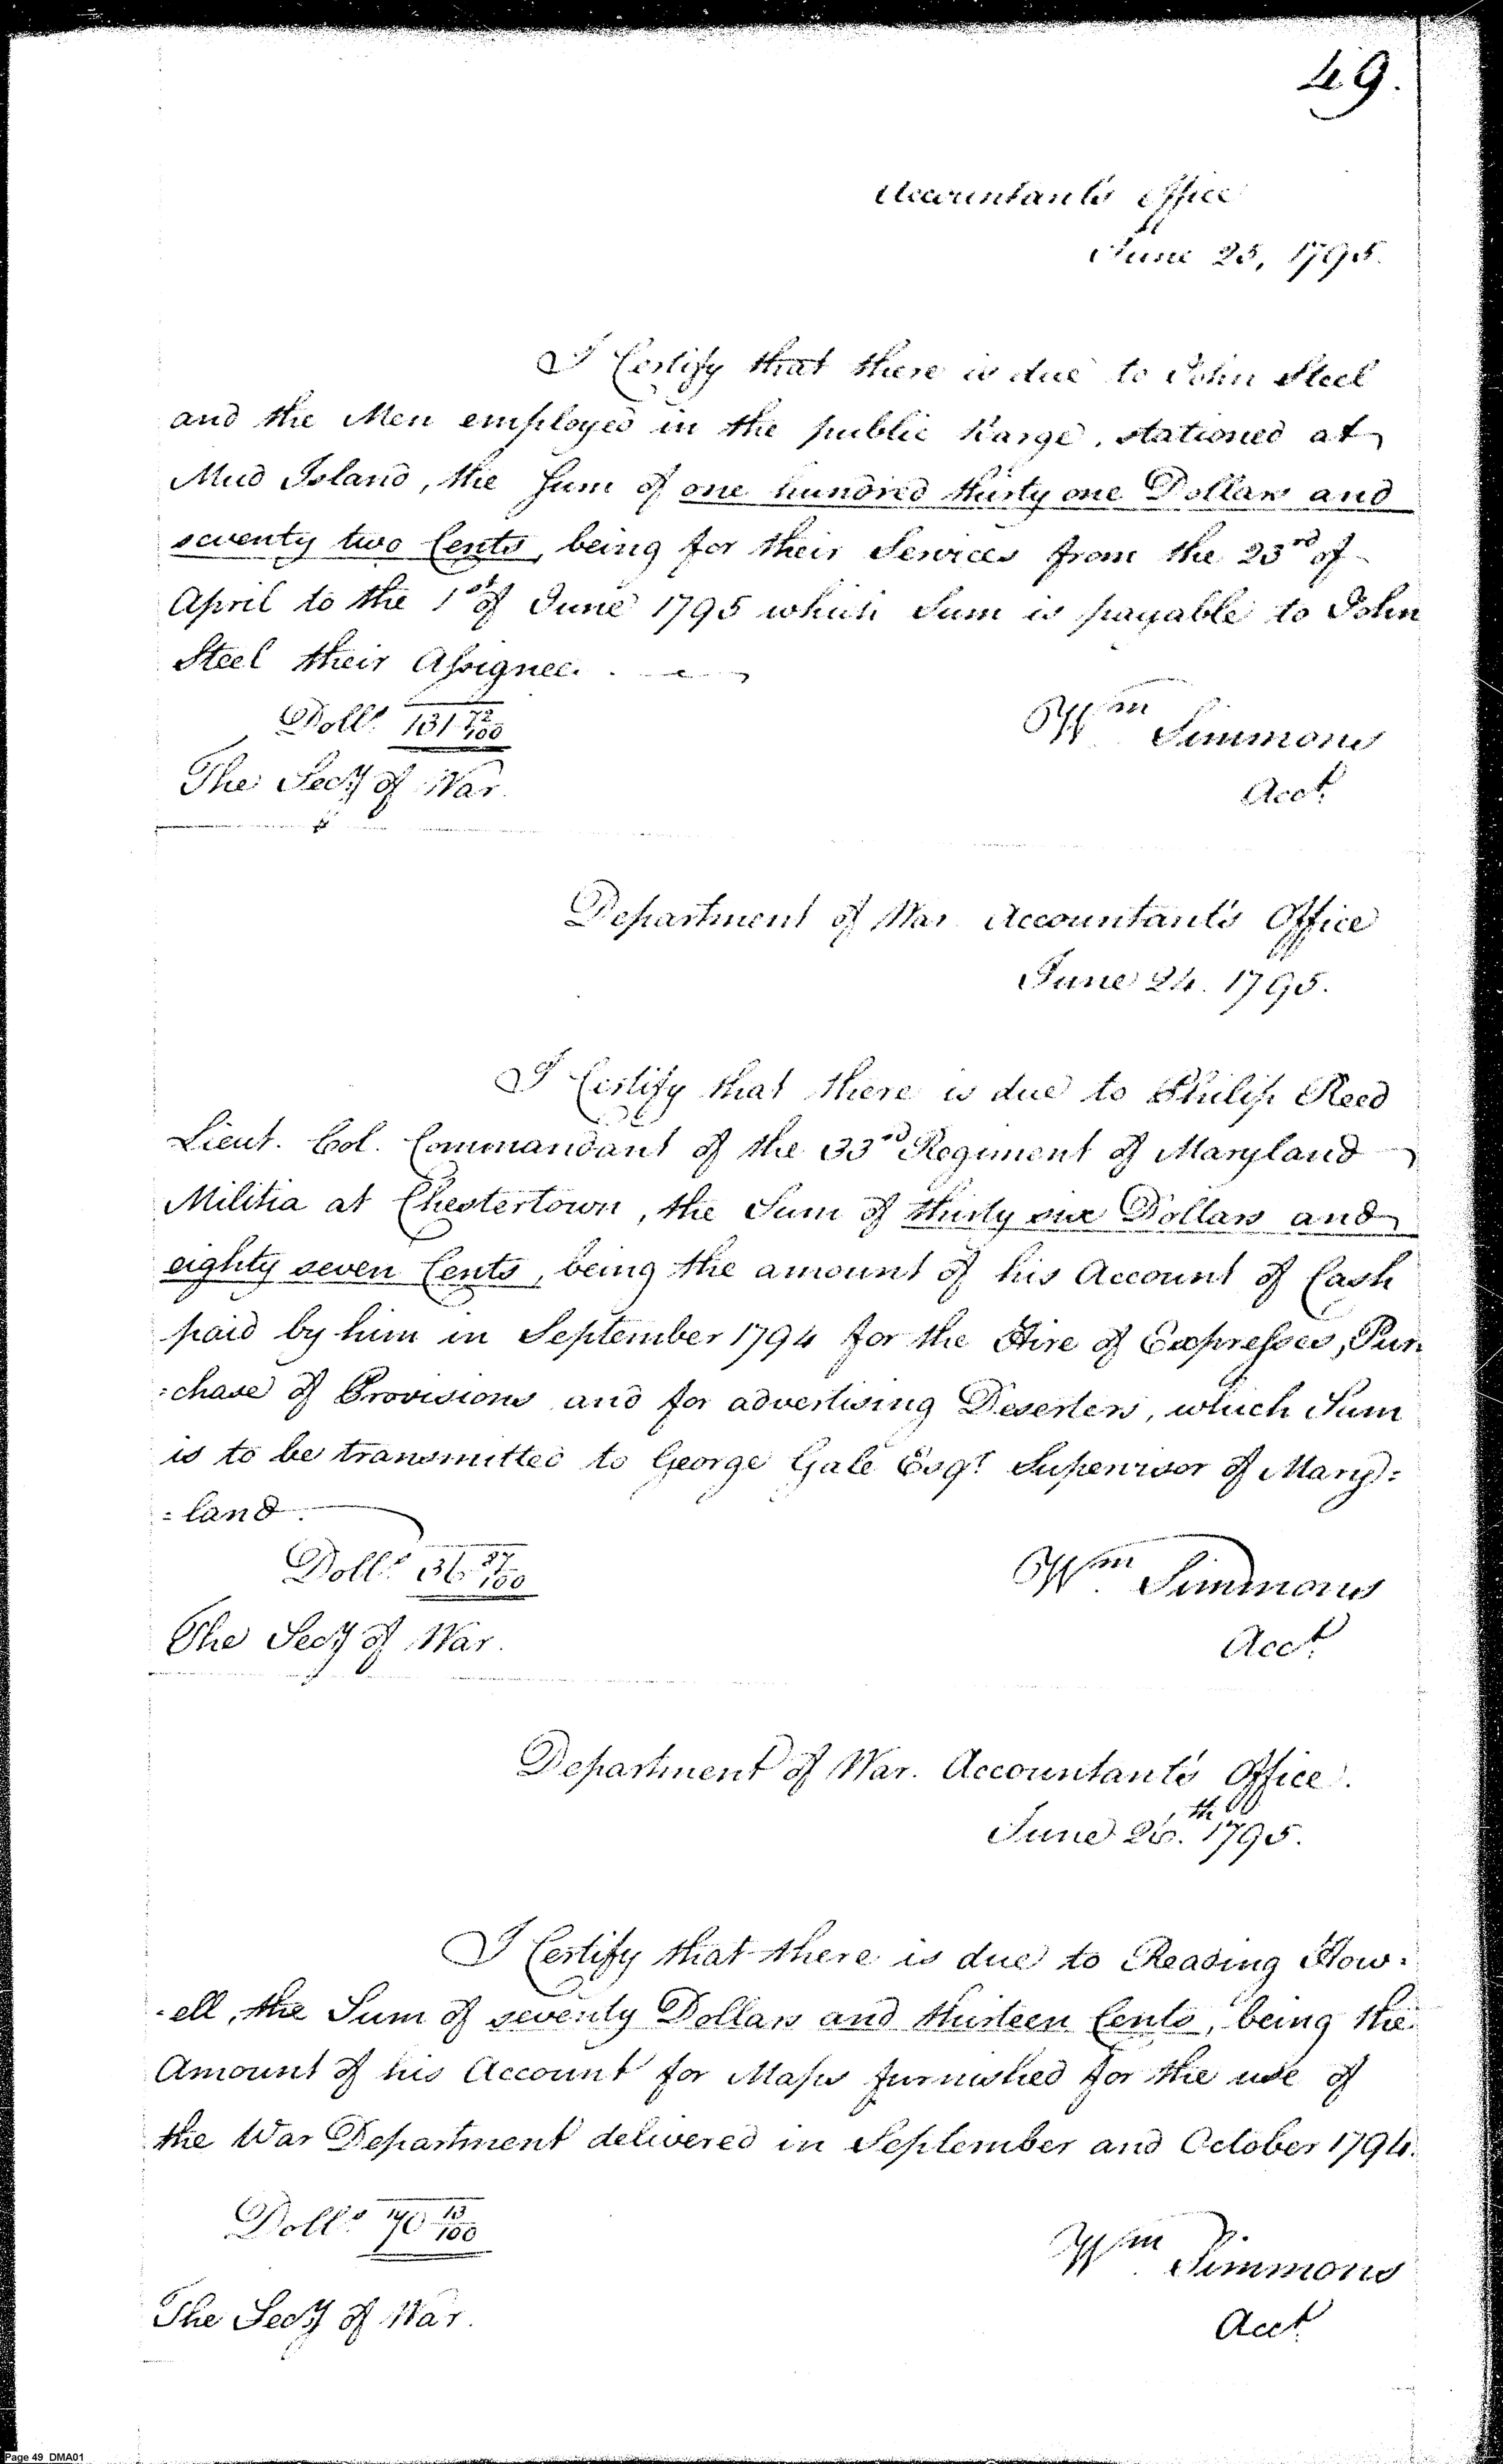 49.
Accountant's Office
June 23, 1795.
I Certify that there is due to John Steel
and the Men employed in the public Barge, stationed at
Mud Island, the Sum of one hundred thirty one Dollars and
seventy two Cents, being for their Services from the 23rd of
April to the 1st of June 1795 which Sum is payable to John
Steel their Assignee.
Dolls. 131 72/100
Wm Simmons
The Secy of War.
Acct.
Department of War Accountant's Office
June 24. 1795.
I Certify that there is due to Philip Reed
Lieut. Col. Commandant of the 33rd Regiment of Maryland
Militia at Chestertown, the Sum of thirty six Dollars and
eighty seven Cents, being the amount of his Account of Cash
paid by him in September 1794 for the Hire of Expresses, Pur
:chase of Provisions and for advertising Deserters, which Sum
is to be transmitted to George Gale Esqr. Supervisor of Mary=
=land.
Dolls. 36 87/100
Wm. Simmons
The Secy of War.
Acct.
Department of War. Accountant's Office.
June 26th. 1795.
I Certify that there is due to Reading How-
-ell, the Sum of seventy Dollars and thirteen Cents, being the
Amount of his Account for Maps furnished for the use of
the War Department delivered in September and October 1794.
Dolls. 70 13/100
Wm. Simmons
The Secy of War.
Acct.
Page 49 DMA01